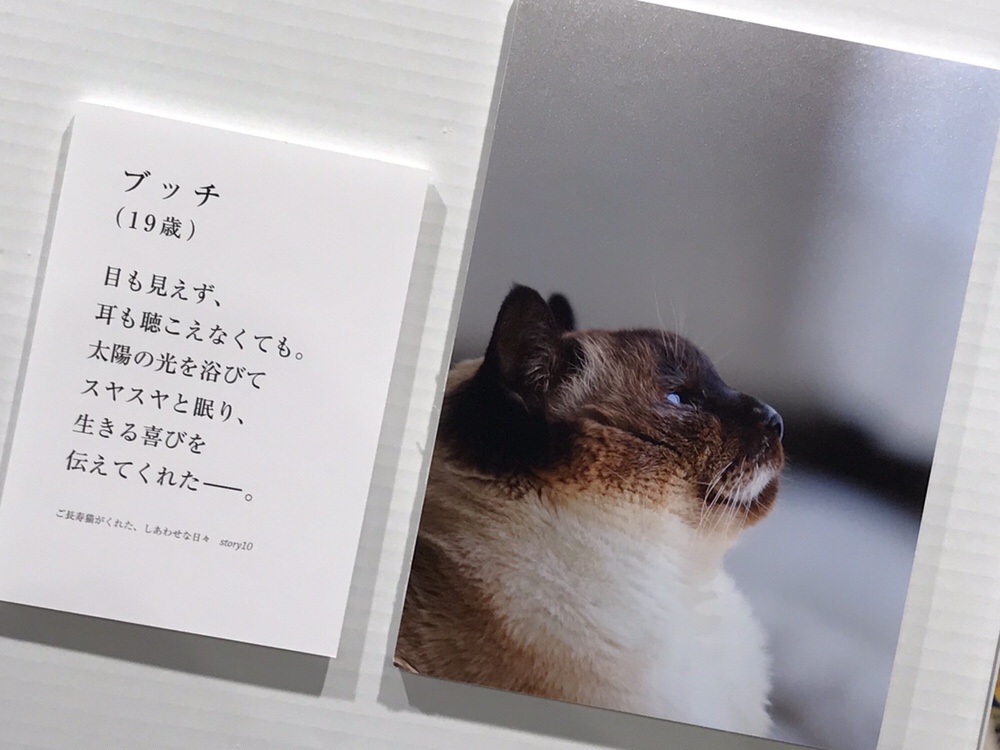 ブッチ
（19歳）
目も見えず、
耳も聴こえなくても。
太陽の光を浴びて
スヤスヤと眠り、
生きる喜びを
伝えてくれた──。
ご長寿猫がくれた、しあわせな日々　story10